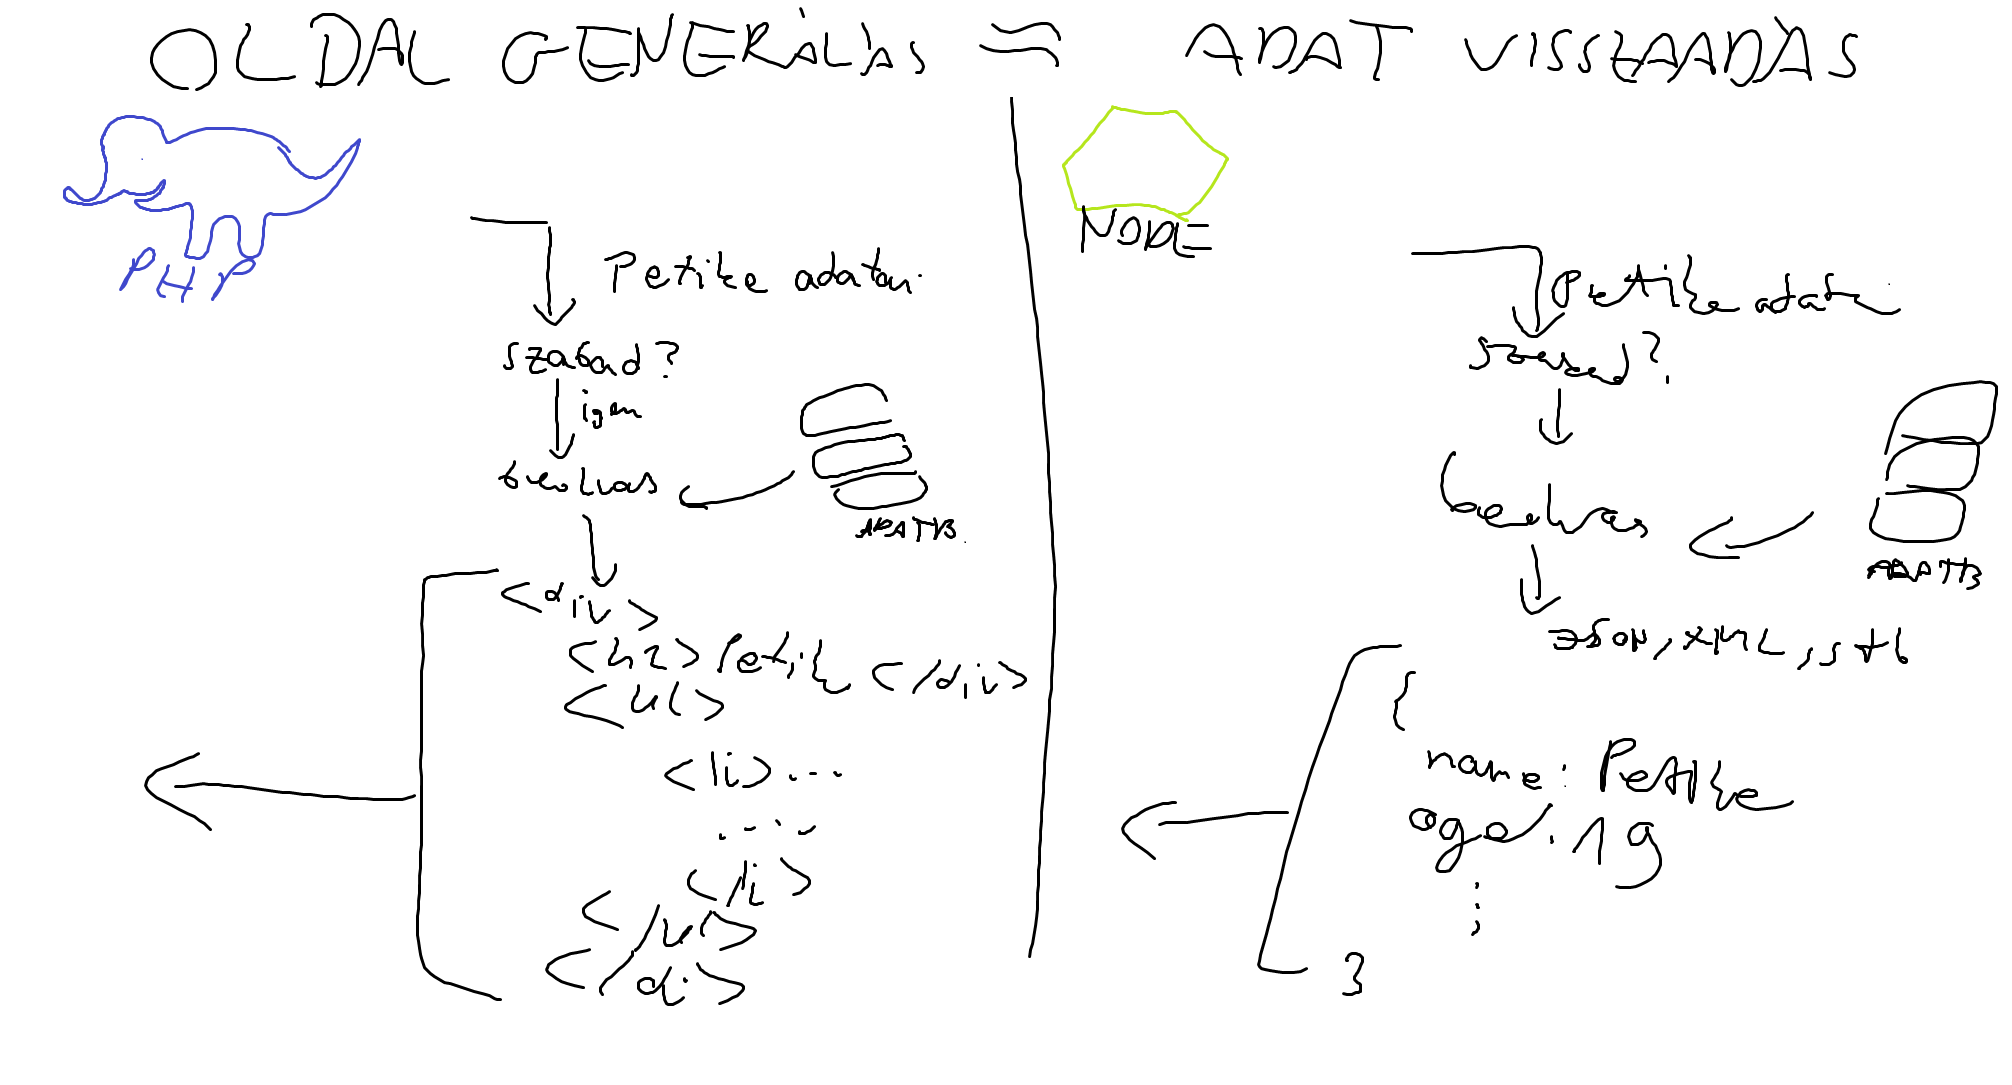 OLDAL GENERÁLÁS ≈ ADAT VISSZAADÁS
PHP
Petike adatai
szabad?
igen
beolvas
ADATB
<div>
<h2> Petike </div>
<ul>
<li> ...
....
</li>
</ul>
</di>
NODE
Petike adatai
szabad?
beolvas
ADATB
JSON, XML, stb
{
name: Petike
age: 19
}